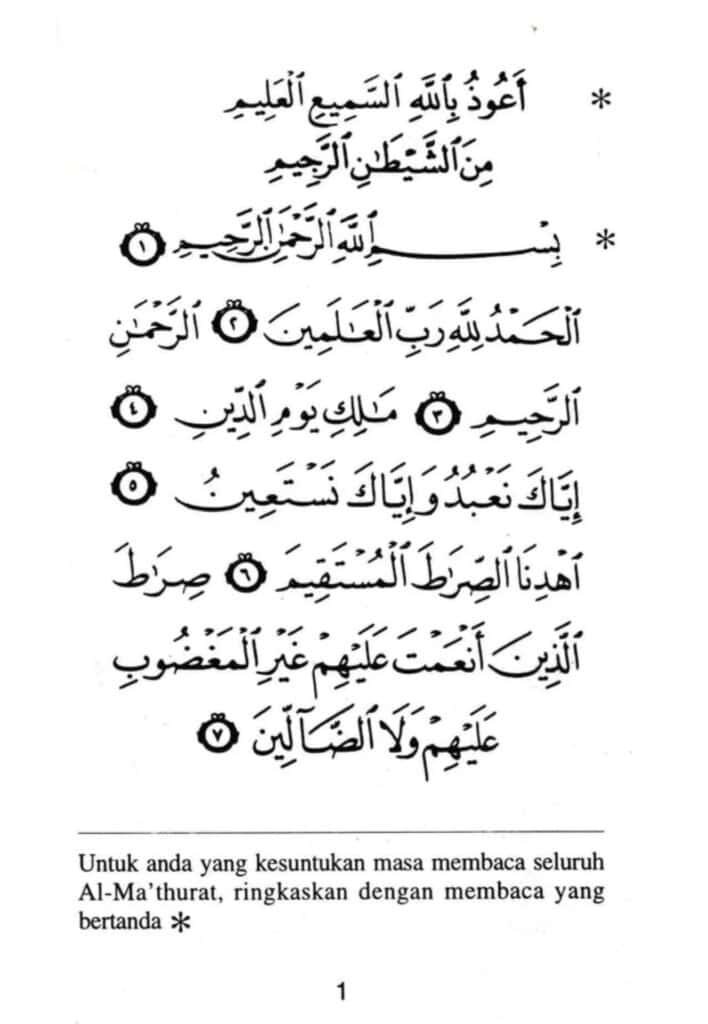 * أَعُوذُ بِٱللَّهِ ٱلسَّمِيعِ ٱلْعَلِيمِ
مِنَ ٱلشَّيْطَٰنِ ٱلرَّجِيمِ
* بِسْمِ ٱللَّهِ ٱلرَّحْمَٰنِ ٱلرَّحِيمِ ١
ٱلْحَمْدُ لِلَّهِ رَبِّ ٱلْعَٰلَمِينَ ٢ ٱلرَّحْمَٰنِ
ٱلرَّحِيمِ ٣ مَٰلِكِ يَوْمِ ٱلدِّينِ ٤
إِيَّاكَ نَعْبُدُ وَإِيَّاكَ نَسْتَعِينُ ٥
ٱهْدِنَا ٱلصِّرَٰطَ ٱلْمُسْتَقِيمَ ٦ صِرَٰطَ
ٱلَّذِينَ أَنْعَمْتَ عَلَيْهِمْ غَيْرِ ٱلْمَغْضُوبِ
عَلَيْهِمْ وَلَا ٱلضَّآلِّينَ ٧
Untuk anda yang kesuntukan masa membaca seluruh
Al-Ma'thurat, ringkaskan dengan membaca yang
bertanda *
1